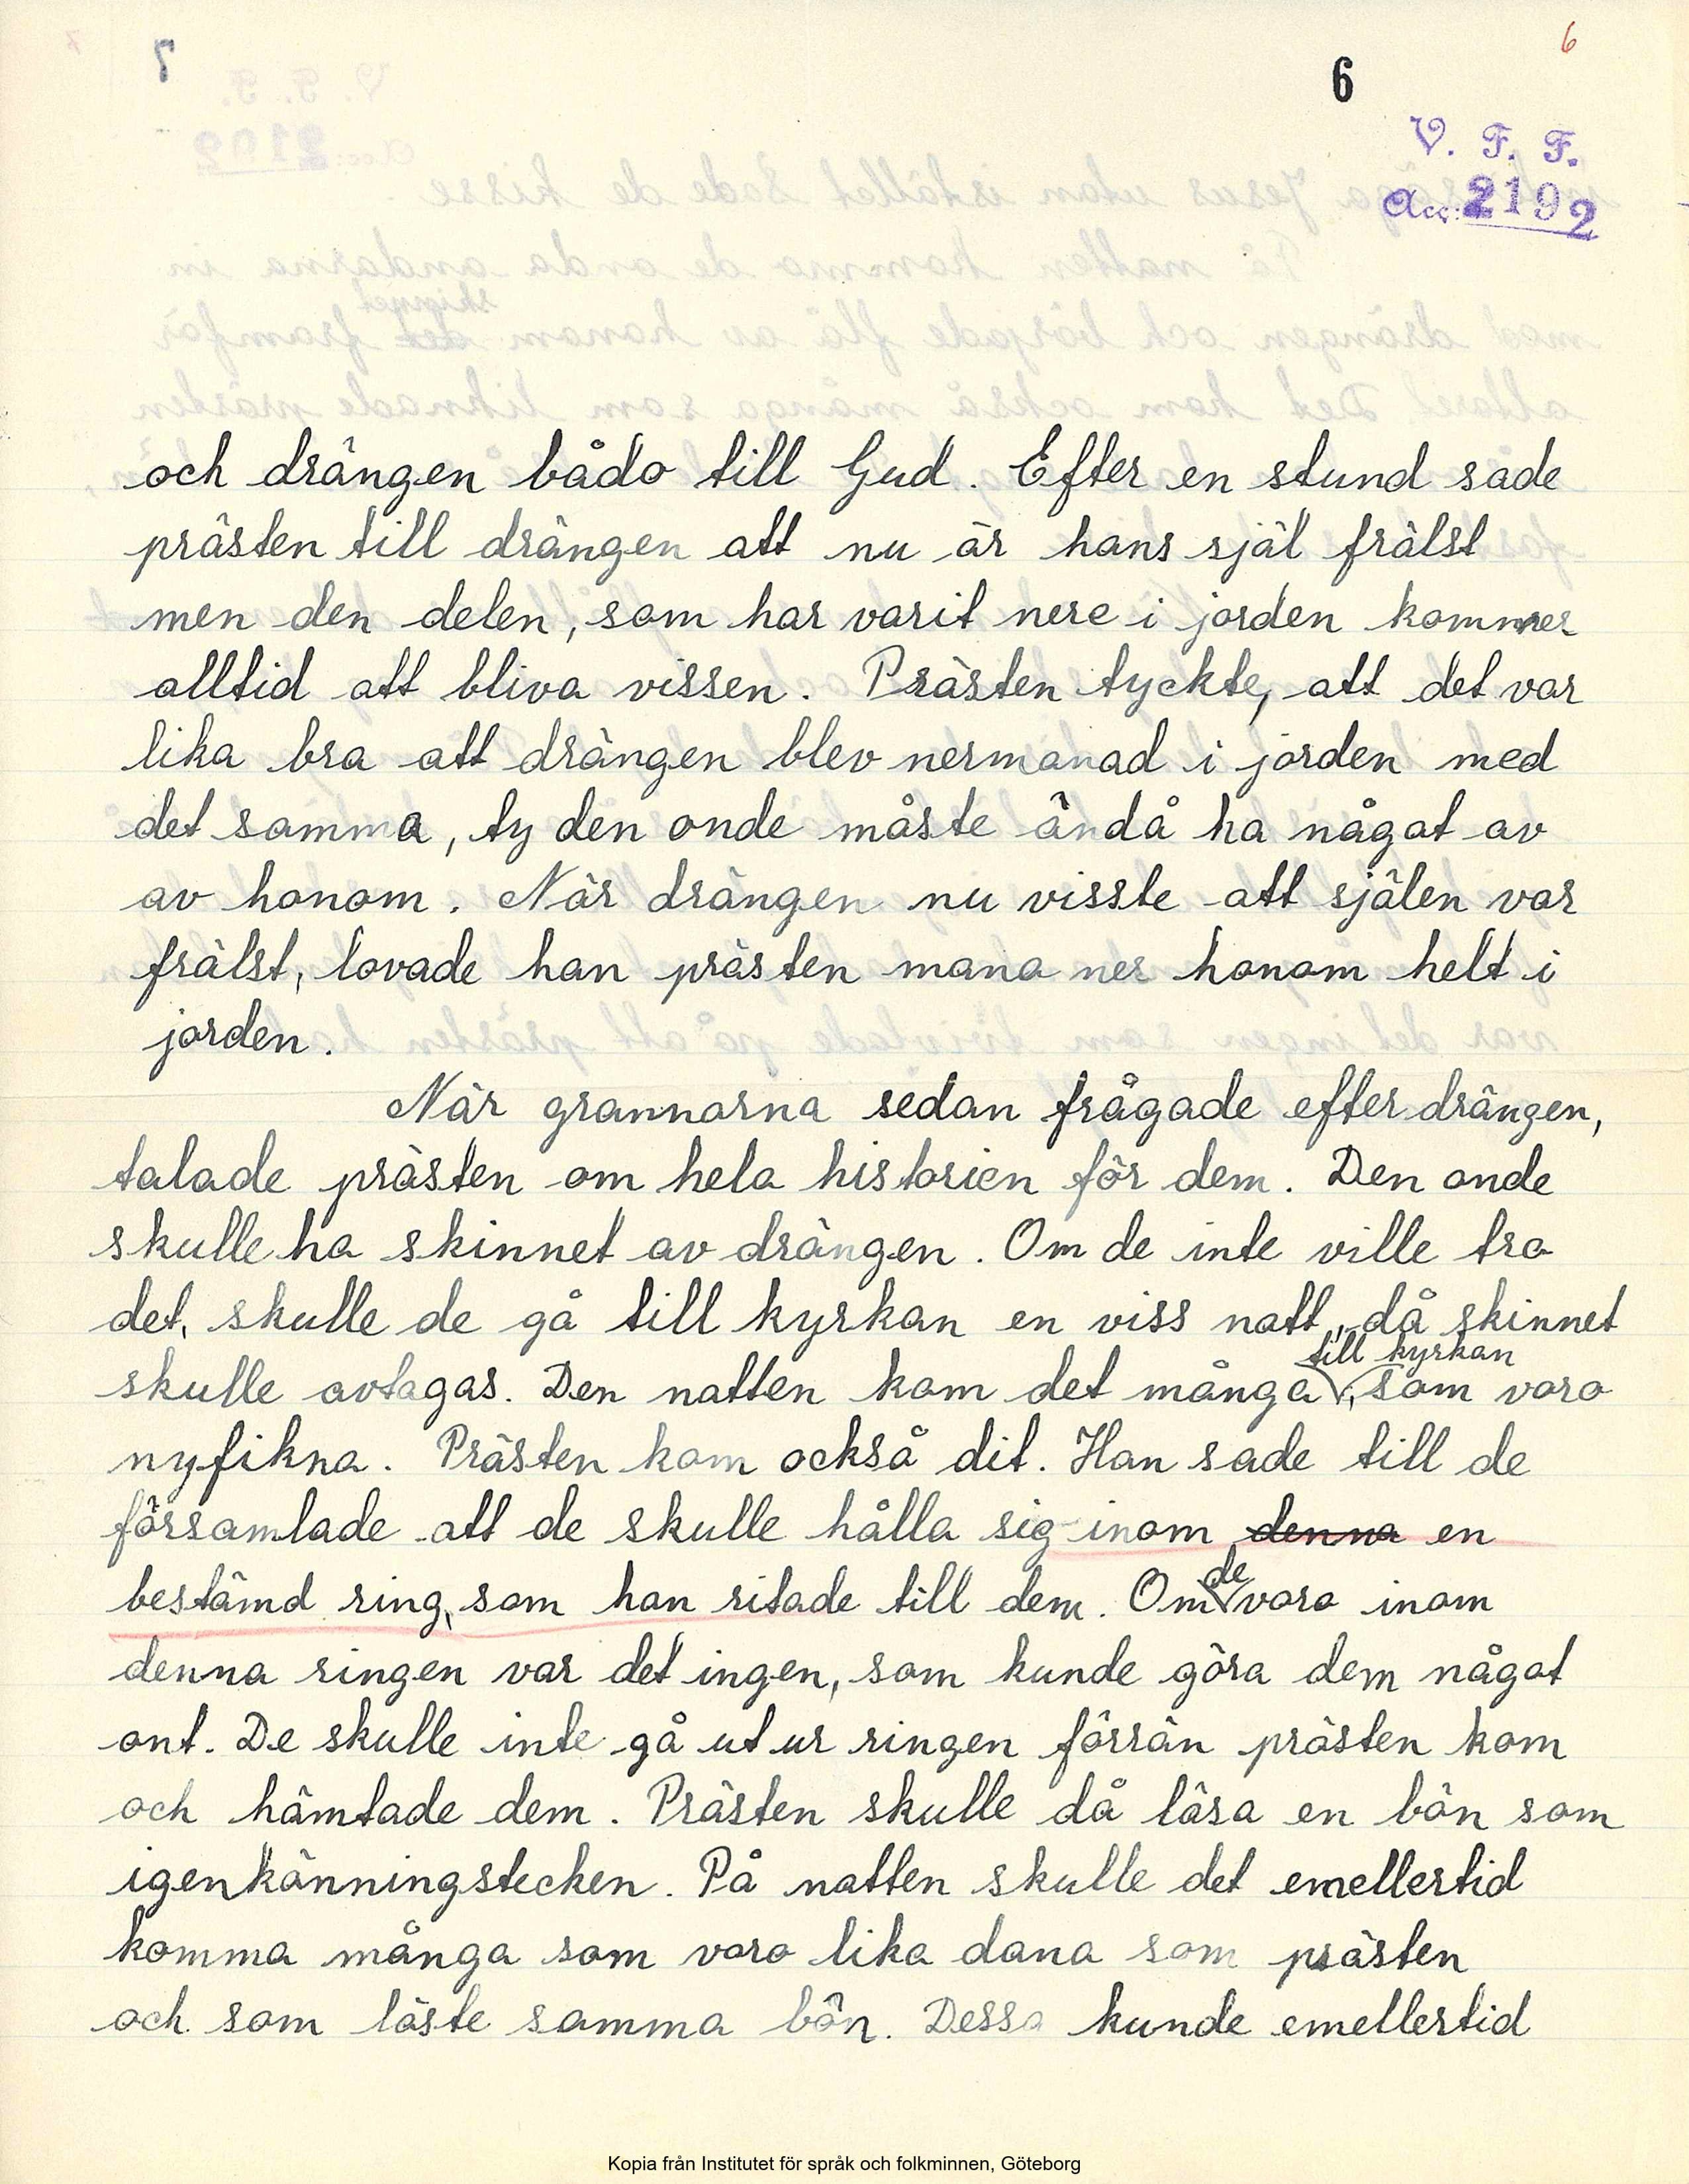 6
6
V. F. F.
Acc: 2192
och drängen bådo till Gud. Efter en stund sade
prästen till drängen att nu är hans själ frälst
men den delen, som har varit nere i jorden kommer
alltid att bliva vissen. Prästen tyckte, att det var
lika bra att drängen blev nermanad i jorden med
det samma, ty den onde måste ändå ha något av
av honom. När drängen nu visste att själen var
frälst, lovade han prästen mana ner honom helt i
jorden.
När grannarna sedan frågade efter drängen,
talade prästen om hela historien för dem. Den onde
skulle ha skinnet av drängen. Om de inte ville tro
det, skulle de gå till kyrkan en viss natt, då skinnet
till kyrkan
skulle avtagas. Den natten kom det många, som voro
nyfikna. Prästen kom också dit. Han sade till de
församlade att de skulle hålla sig inom denna en
de
bestämd ring, som han ritade till dem. Om voro inom
denna ringen var det ingen, som kunde göra dem något
ont. De skulle inte gå ut ur ringen förrän prästen kom
och hämtade dem. Prästen skulle då läsa en bön som
igenkänningstecken. På natten skulle det emellertid
komma många som voro lika dana som prästen
och som läste samma bön. Dessa kunde emellertid
Kopia från Institutet för språk och folkminnen, Göteborg